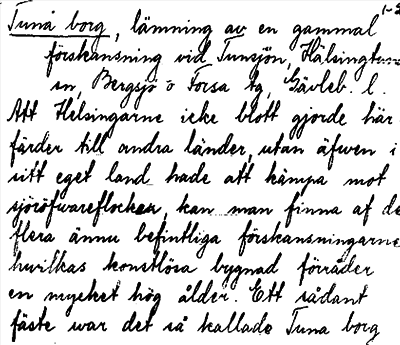 Tunå borg, lämning av en gammal
förskansning vid Tunsjön, Hälsingtuna
sn, Bergsjö o Forsa tg, Gävleb. l.
Att Helsingarne icke blott gjorde här-
färder till andra länder, utan äfwen i
sitt eget land hade att kämpa mot
sjöröfwareflocken, kan man finna af de
flera ännu befintliga förskansningarne
hwilkas konstlösa bygnad förråder
en mycket hög ålder. Ett sådant
fäste war det så kallade Tuna borg